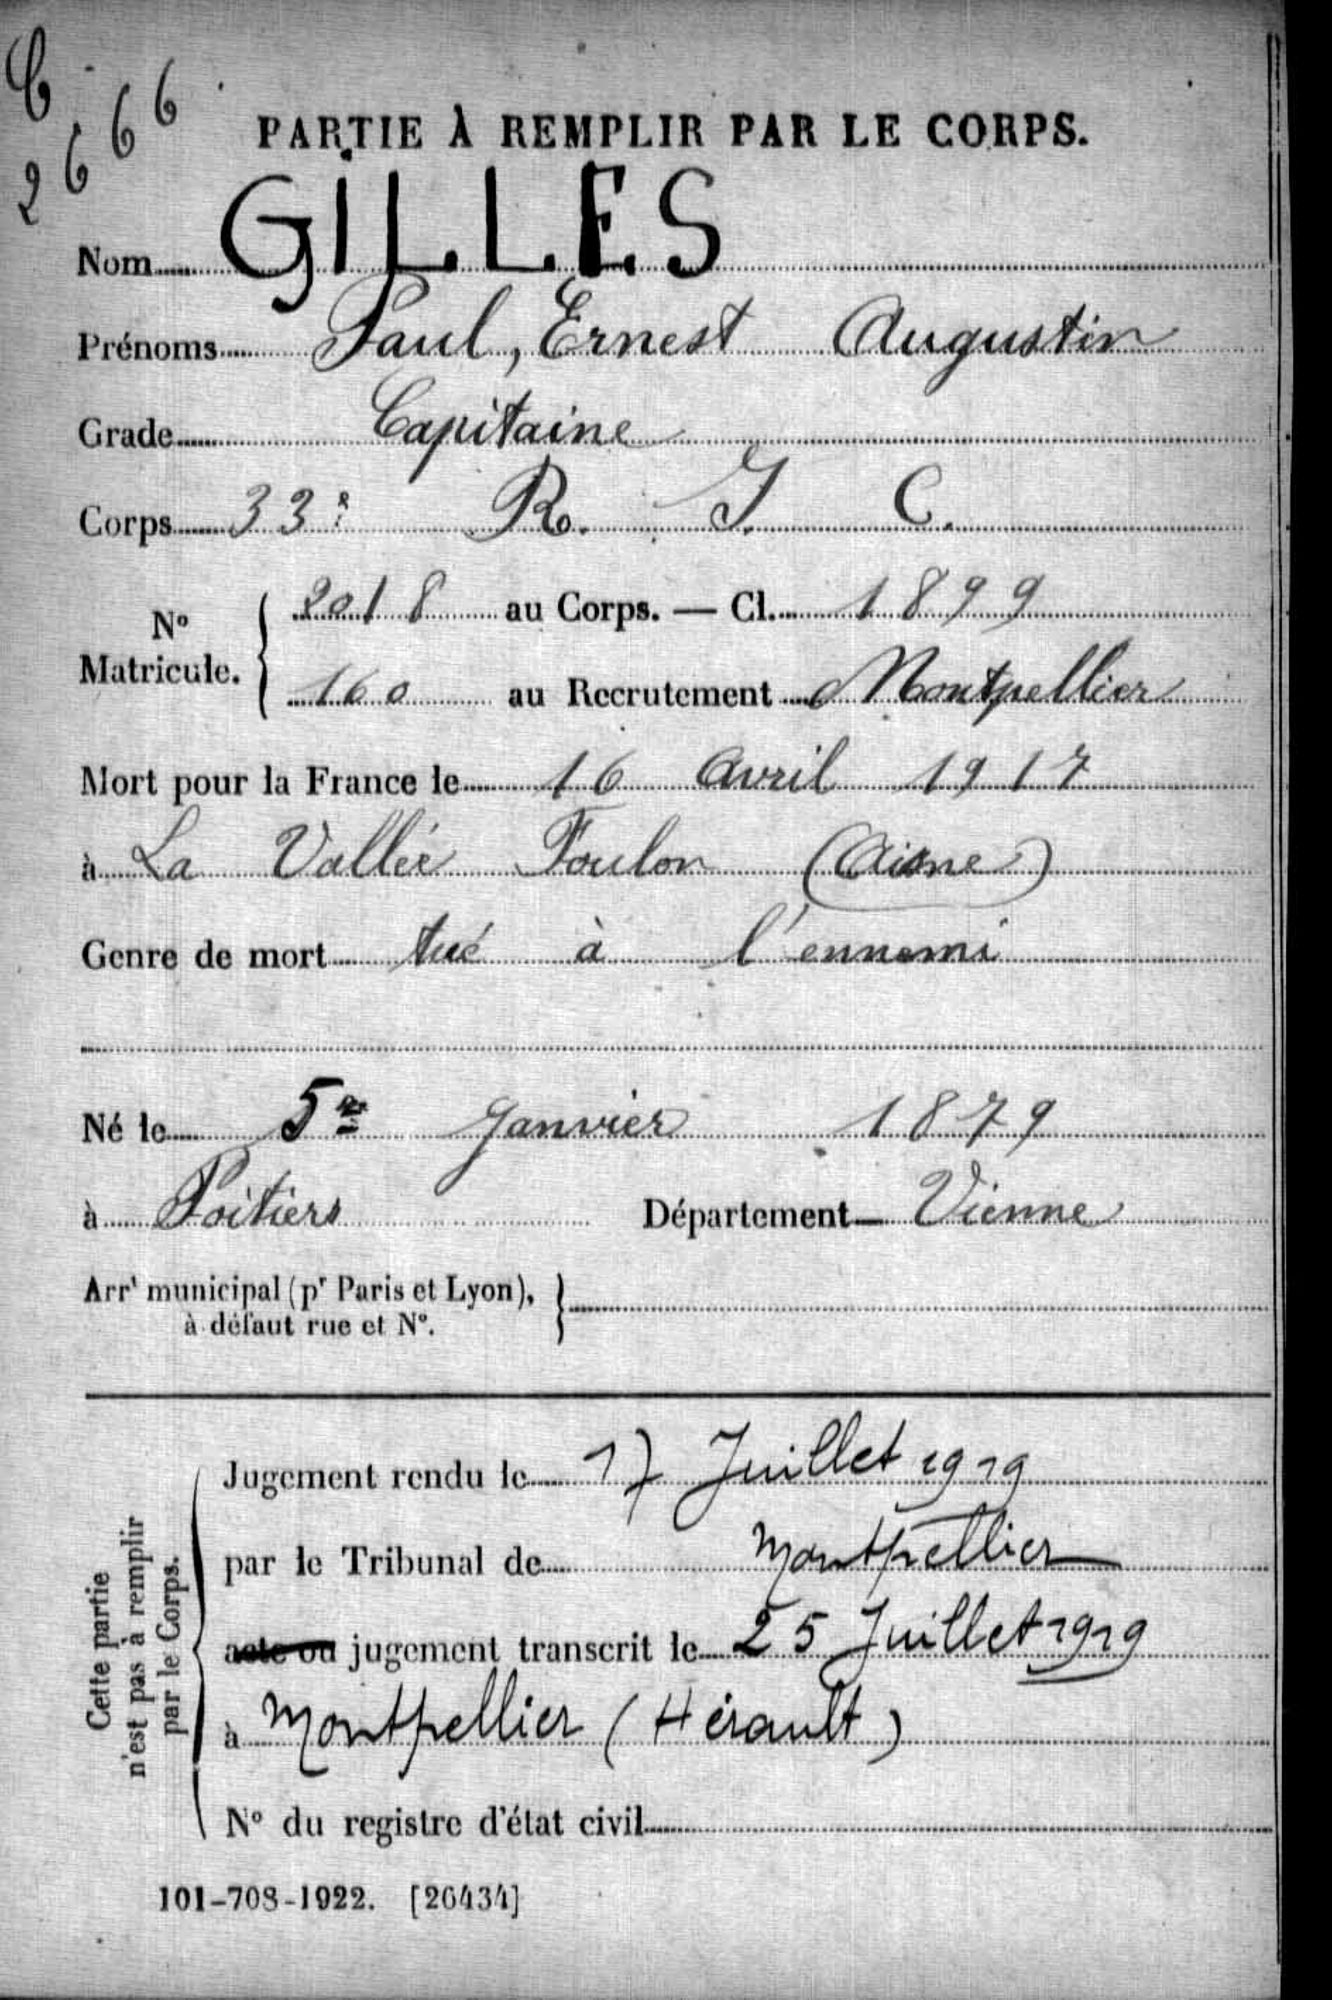 C
2666
PARTIE À REMPLIR PAR LE CORPS.
Nom GILLES
Prénoms Paul, Ernest Augustin
Grade Capitaine
Corps 33e R. I. C.
N° Matricule. { 2018 au Corps. — Cl. 1899
160 au Recrutement Montpellier
Mort pour la France le 16 Avril 1917
à La Vallée Foulon (Aisne)
Genre de mort tué à l'ennemi
Né le 5 Janvier 1879
à Poitiers Département Vienne
Arrt municipal (pr Paris et Lyon), }
à défaut rue et N°.
Cette partie
n'est pas à remplir
par le Corps.
Jugement rendu le 17 Juillet 1919
par le Tribunal de Montpellier
acte ou jugement transcrit le 25 Juillet 1919
à Montpellier (Hérault)
N° du registre d'état civil
101-708-1922. [26434]